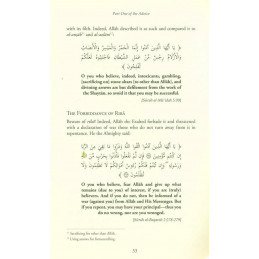 Part One of the Advices
with its filth. Indeed, Allāh described it as such and compared it to
al-anṣāb¹ and al-azlām²:
﴿ يَا أَيُّهَا الَّذِينَ آمَنُوا إِنَّمَا الْخَمْرُ وَالْمَيْسِرُ وَالْأَنْصَابُ
وَالْأَزْلَامُ رِجْسٌ مِنْ عَمَلِ الشَّيْطَانِ فَاجْتَنِبُوهُ لَعَلَّكُمْ
تُفْلِحُونَ ﴾
O you who believe, indeed, intoxicants, gambling,
[sacrificing on] stone alters [to other than Allāh], and
divining arrows are but defilement from the work of
the Shayṭān, so avoid it that you may be successful.
[Sūrah al-Mā'idah 5:90]
THE FORBIDDANCE OF RIBĀ
Beware of ribā! Indeed, Allāh the Exalted forbade it and threatened
with a declaration of war those who do not turn away from it in
repentance. He the Almighty said:
﴿ يَا أَيُّهَا الَّذِينَ آمَنُوا اتَّقُوا اللَّهَ وَذَرُوا مَا بَقِيَ مِنَ
الرِّبَا إِنْ كُنْتُمْ مُؤْمِنِينَ ۝ فَإِنْ لَمْ تَفْعَلُوا فَأْذَنُوا بِحَرْبٍ
مِنَ اللَّهِ وَرَسُولِهِ وَإِنْ تُبْتُمْ فَلَكُمْ رُءُوسُ أَمْوَالِكُمْ
لَا تَظْلِمُونَ وَلَا تُظْلَمُونَ ﴾
O you who believe, fear Allāh and give up what
remains (due to you) of interest, if you are truly
believers. And if you do not, then be informed of a
war (against you) from Allāh and His Messenger. But
if you repent, you may have your principal—thus you
do no wrong, nor are you wronged.
[Sūrah al-Baqarah 2:278-279]
¹ Sacrificing for other than Allāh.
² Using arrows for fortunetelling.
33